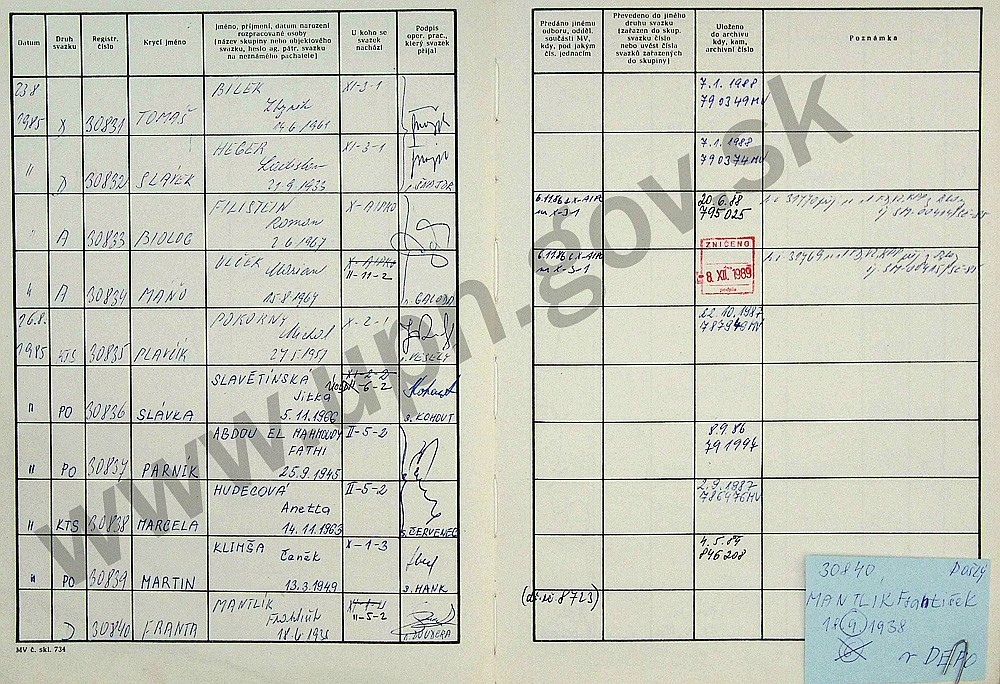 Datum
Druh svazku
Registr. číslo
Krycí jméno
Jméno, příjmení, datum narození
rozpracované osoby
(název skupiny nebo objektového
svazku, heslo ag. pátr. svazku
na neznámého pachatele)
U koho se svazek nachází
Podpis oper. prac., který svazek přijal
Předáno jinému
odboru, odděl.
součásti MV,
kdy, pod jakým
čís. jednacím
Převedeno do jiného
druhu svazku
(zařazen do skup.
svazku číslo
nebo uvést čísla
svazků zařazených
do skupiny)
Uloženo
do archivu
kdy, kam,
archivní číslo
Poznámka
BÍLEK XI-3-1
23.8
1985 30831 TOMÁŠ Zbyněk
14.6.1961
7.1.1988
790349MV
HEGER XI-3-1
" D 30832 SLÁVEK Ladislav
21.9.1933
7.1.1988
790374MV
FILISTEIN X-AIPKO
" A 30833 BIOLOG Roman
2.6.1967
na X-3-1
20.6.88
795025
VLČEK X-AIPKO
II-11-2
" A 30834 Miroslav
15.8.1964 GALODA
na X-3-1
ZNIČENO
-8. XII. 1989
podpis
POKORNÝ X-2-1
26.8.
1985 KTS 30835 PLAVČÍK Michal
27.5.1957 VESELÝ
22.10.1987
787940MV
SLAVĚTÍNSKÁ XI-2-2
Jitka -6-2
" PO 30836 SLÁVKA 5.11.1966 KOHOUT
ABDOU EL MAHMOUDY II-5-2
FATHI
" PO 30837 PARNÍK 25.9.1945
8.9.86
791997
HUDECOVÁ II-5-2
Anetta
" KTS 30838 MARCELA 14.11.1963 ČERVENEC
2.9.1987
786476MV
KLIMŠA X-1-3
Čeněk
" PO 30839 MARTIN 13.3.1949 HANK
4.5.89
846208
MANTLÍK
František II-5-2
D 30840 FRANTA KUDERA
MV č. skl. 734
30840 Došlý
MANTLIK František
18 9 1938
v DEPO
www.upn.gov.sk